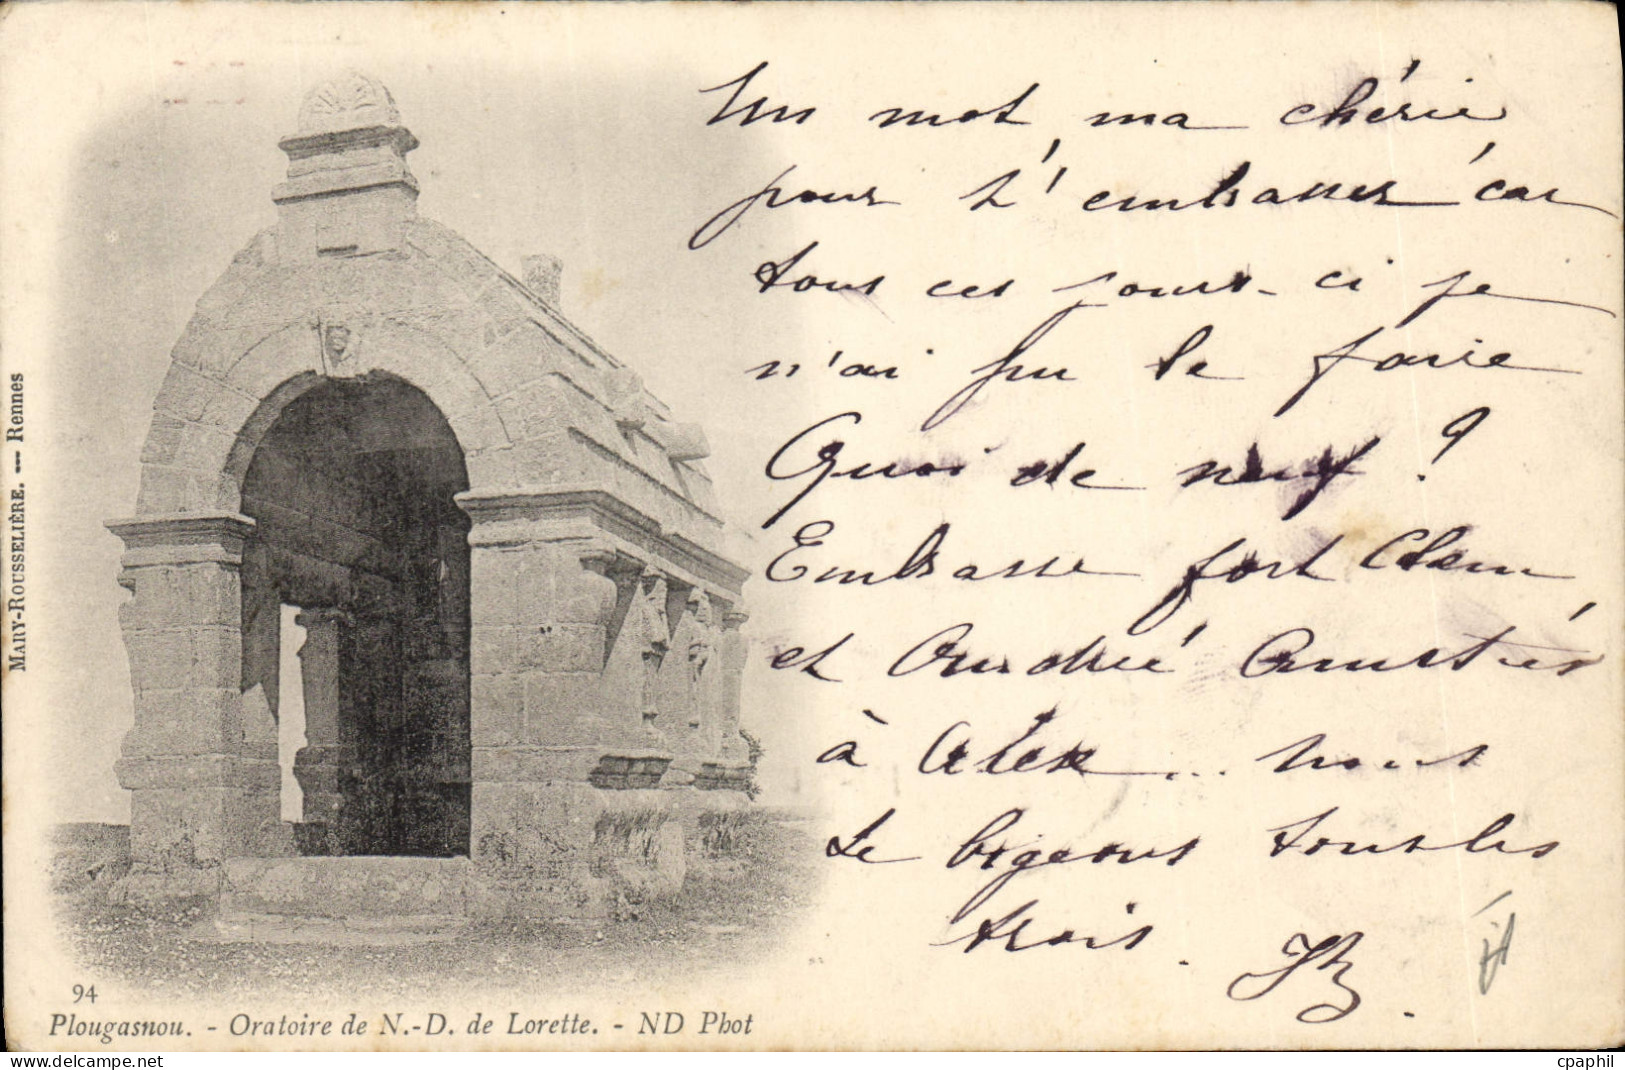 Un mot, ma chérie
pour t'embrasser car
tous ces jours-ci je
n'ai pu le faire
Quoi de neuf ?
Embrasse fort Clem
et André Amitiés
à Alex ... nous
te bigeons tous les
trois.
MARY-ROUSSELIÈRE. --- Rennes
94
Plougasnou. - Oratoire de N.-D. de Lorette. - ND Phot
delcampe.net
cpaphil